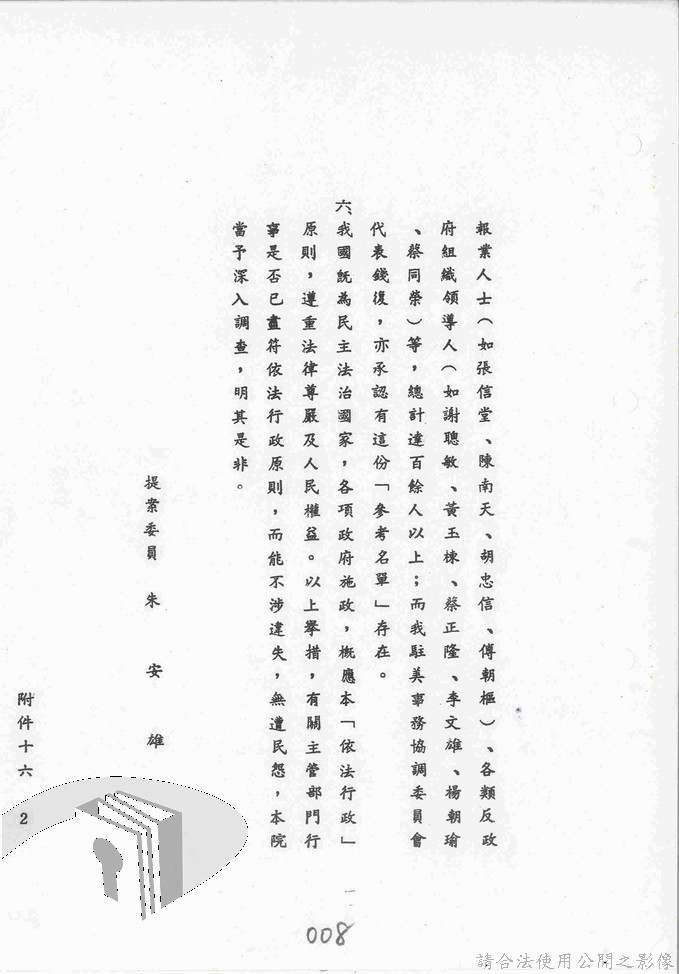 報業人士(如張信堂、陳南天、胡忠信、傅朝樞)、各類反政
府組織領導人(如謝聰敏、黃玉棟、蔡正隆、李文雄、楊朝瑜
、蔡同榮)等,總計達百餘人以上;而我駐美事務協調委員會
代表錢復,亦承認有這份「參考名單」存在。
六、我國既為民主法治國家,各項政府施政,概應本「依法行政」
原則,遵重法律尊嚴及人民權益。以上舉措,有關主管部門行
事是否已盡符依法行政原則,而能不涉違失,無遭民怨,本院
當予深入調查,明其是非。
提案委員 朱 安 雄
附件十六 2
一
008
請合法使用公開之影像